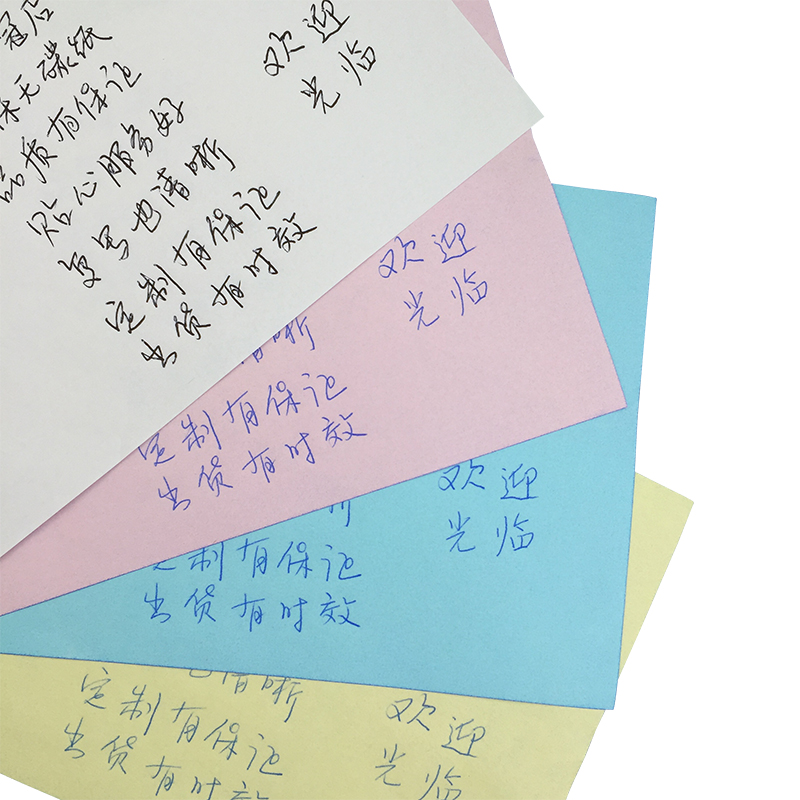 冠店
保无碳纸
品质有保证
贴心服务好
复写也清晰
定制有保证
出货有时效
欢迎
光临
清晰
定制有保证
出货有时效
欢迎
光临
晰
定制有保证
出货有时效
欢迎
光临
也清晰
定制有保证
出货有时效
欢迎
光临